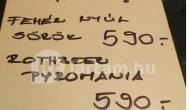 FEHÉR NYÚL
SÖRÖK 590-
ROTHBEER
PYROMANIA
590-